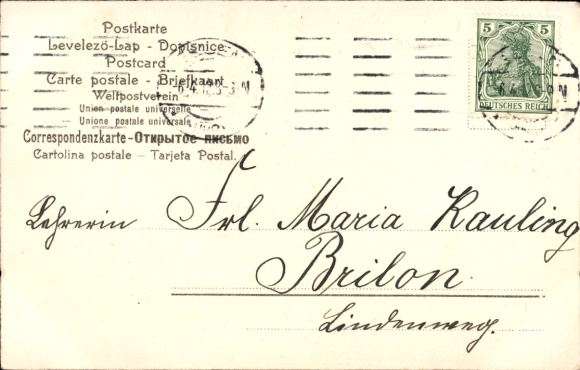 Postkarte
Levelezö-Lap - Dopisnice
Postcard
Carte postale - Briefkaart
Weltpostverein
Union postale universelle
Unione postale universale
Correspondenzkarte - Открытое письмо
Cartolina postale - Tarjeta Postal.
5 5
DEUTSCHES REICH
Lehrerin Frl. Maria Rauling
Brilon
Lindenweg.